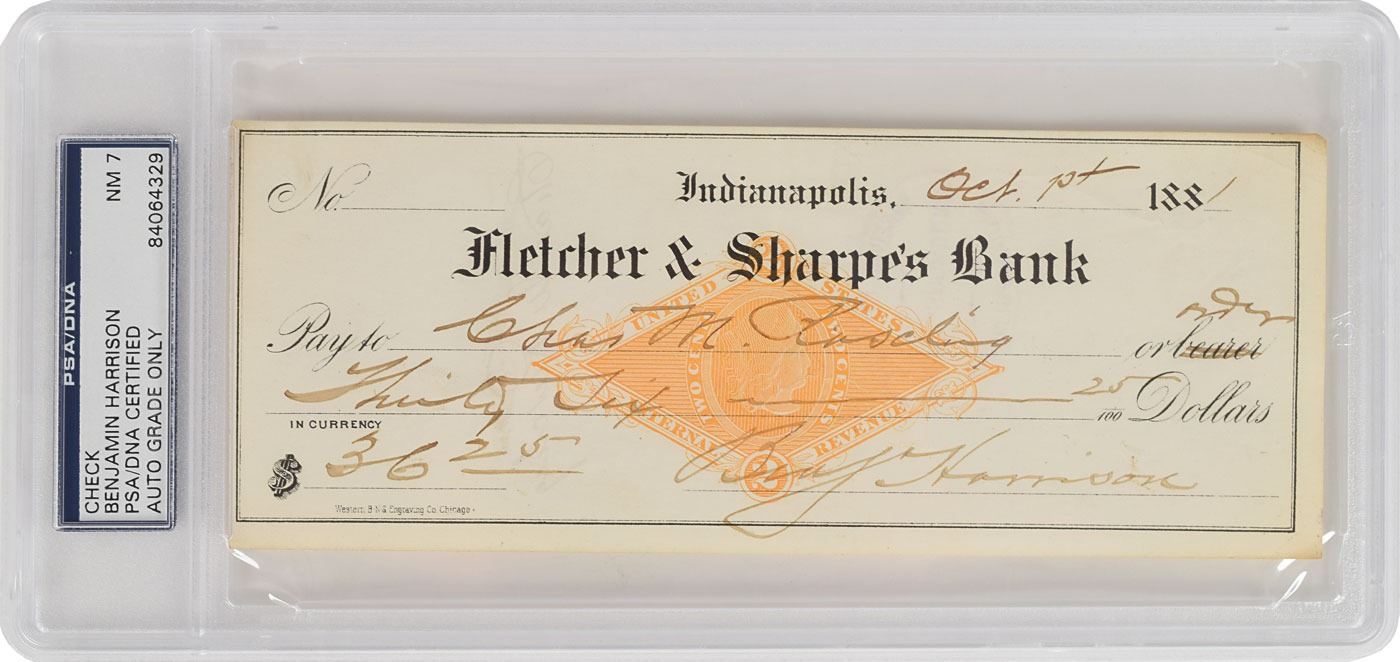 PSA/DNA
CHECK
BENJAMIN HARRISON
PSA/DNA CERTIFIED
AUTO GRADE ONLY
NM 7
84064329
No.
Indianapolis, Oct. 1st 1881
Fletcher & Sharpe's Bank
order
Pay to Chas M. or bearer
Thirty Six 25/100 Dollars
IN CURRENCY
$ 36 25
Benj Harrison
UNITED STATES
INTERNAL REVENUE
TWO CENTS
2
Western B.N & Engraving Co. Chicago.